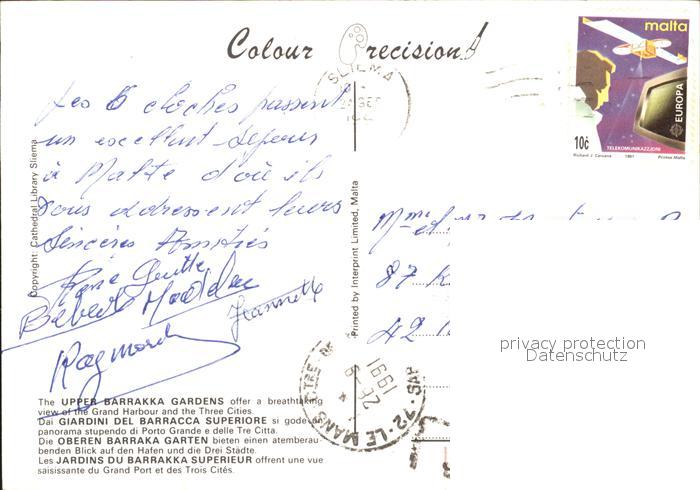 Colour Precision
malta
SLIEMA
EUROPA
10c
TELEKOMUNIKAZZJONI
Richard J. Caruana 1991 Printex Malta
Les 6 cloches passent
un excellent séjour
à Malte d'où ils
vous adressent leurs
Sincères Amitiés
Jeannette
Raymond
Copyright: Cathedral Library Sliema
Printed by Interprint Limited, Malta
Mme et
87
42
privacy protection
Datenschutz
72-LE MANS
1991
The UPPER BARRAKKA GARDENS offer a breathtaking
view of the Grand Harbour and the Three Cities.
Dai GIARDINI DEL BARRACCA SUPERIORE si gode un
panorama stupendo di Porto Grande e delle Tre Citta.
Die OBEREN BARRAKA GARTEN bieten einen atemberau-
benden Blick auf den Hafen und die Drei Städte.
Les JARDINS DU BARRAKKA SUPERIEUR offrent une vue
saisissante du Grand Port et des Trois Cités.